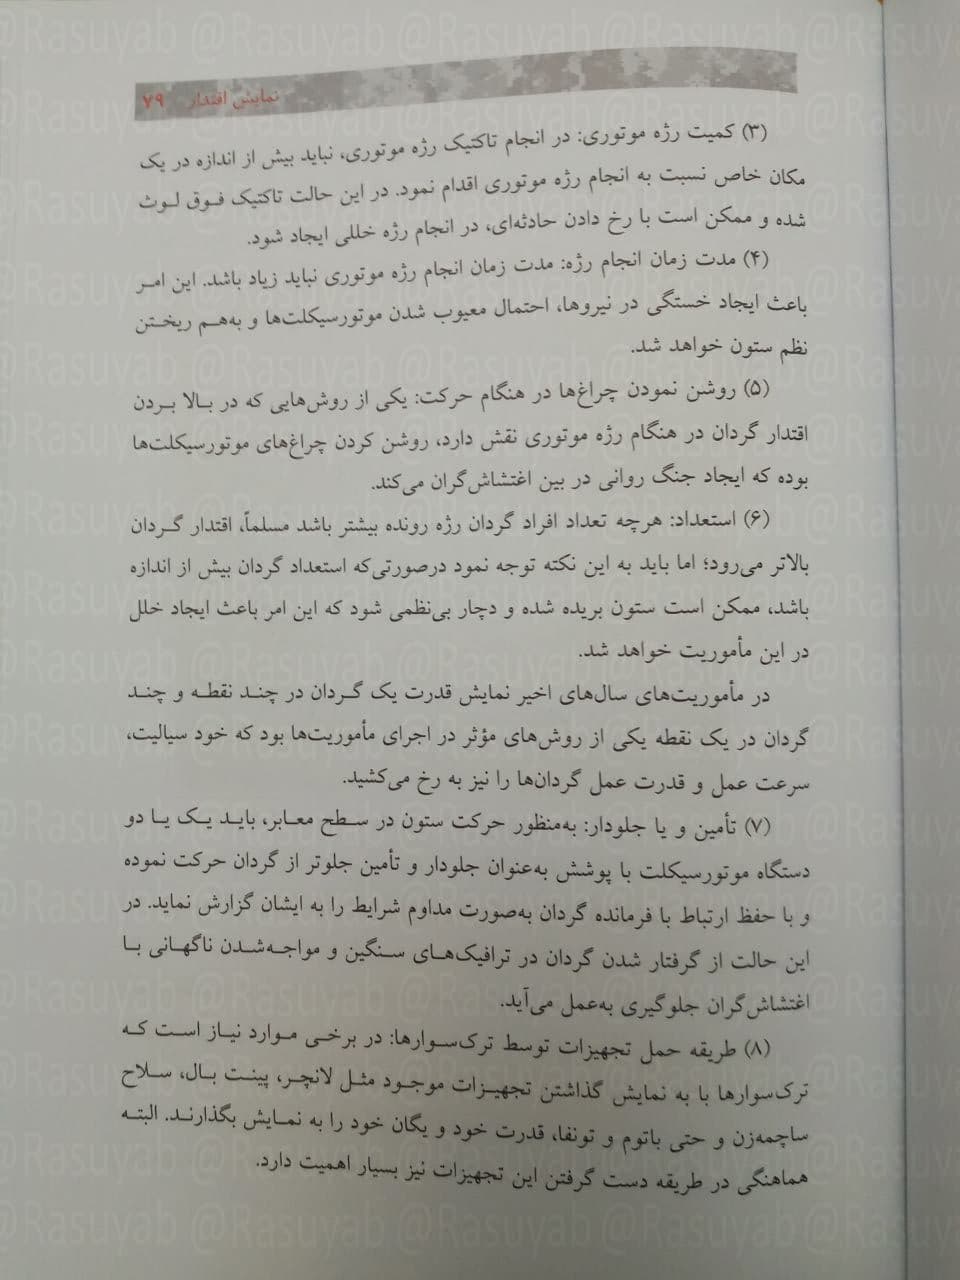 @Rasuyab @Rasuyab @Rasuyab
نمایش اقتدار ۷۹
(۳) کمیت رژه موتوری: در انجام تاکتیک رژه موتوری، نباید بیش از اندازه در یک
مکان خاص نسبت به انجام رژه موتوری اقدام نمود. در این حالت تاکتیک فوق لوث
شده و ممکن است با رخ دادن حادثه‌ای، در انجام رژه خللی ایجاد شود.
(۴) مدت زمان انجام رژه: مدت زمان انجام رژه موتوری نباید زیاد باشد. این امر
باعث ایجاد خستگی در نیروها، احتمال معیوب شدن موتورسیکلت‌ها و به‌هم ریختن
نظم ستون خواهد شد.
(۵) روشن نمودن چراغ‌ها در هنگام حرکت: یکی از روش‌هایی که در بالا بردن
اقتدار گردان در هنگام رژه موتوری نقش دارد، روشن کردن چراغ‌های موتورسیکلت‌ها
بوده که ایجاد جنگ روانی در بین اغتشاش‌گران می‌کند.
(۶) استعداد: هرچه تعداد افراد گردان رژه رونده بیشتر باشد مسلماً، اقتدار گردان
بالاتر می‌رود؛ اما باید به این نکته توجه نمود درصورتی‌که استعداد گردان بیش از اندازه
باشد، ممکن است ستون بریده شده و دچار بی‌نظمی شود که این امر باعث ایجاد خلل
در این مأموریت خواهد شد.
در مأموریت‌های سال‌های اخیر نمایش قدرت یک گردان در چند نقطه و چند
گردان در یک نقطه یکی از روش‌های مؤثر در اجرای مأموریت‌ها بود که خود سیالیت،
سرعت عمل و قدرت عمل گردان‌ها را نیز به رخ می‌کشید.
(۷) تأمین و یا جلودار: به‌منظور حرکت ستون در سطح معابر، باید یک یا دو
دستگاه موتورسیکلت با پوشش به‌عنوان جلودار و تأمین جلوتر از گردان حرکت نموده
و با حفظ ارتباط با فرمانده گردان به‌صورت مداوم شرایط را به ایشان گزارش نماید. در
این حالت از گرفتار شدن گردان در ترافیک‌های سنگین و مواجه‌شدن ناگهانی با
اغتشاش‌گران جلوگیری به‌عمل می‌آید.
(۸) طریقه حمل تجهیزات توسط ترک‌سوارها: در برخی موارد نیاز است که
ترک‌سوارها با به نمایش گذاشتن تجهیزات موجود مثل لانچر، پینت بال، سلاح
ساچمه‌زن و حتی باتوم و تونفا، قدرت خود و یگان خود را به نمایش بگذارند. البته
هماهنگی در طریقه دست گرفتن این تجهیزات نیز بسیار اهمیت دارد.